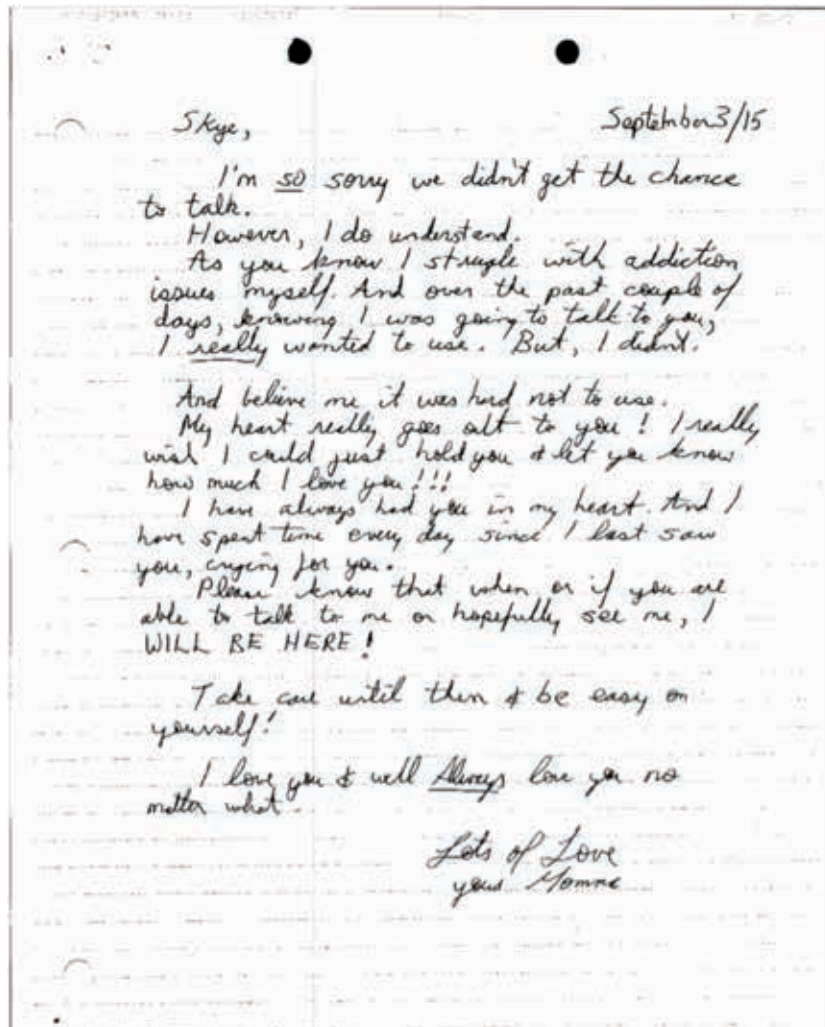 Skye, September 3/15
I'm so sorry we didn't get the chance
to talk.
However, I do understand.
As you know I struggle with addiction
issues myself. And over the past couple of
days, knowing I was going to talk to you,
I really wanted to use. But, I didn't.
And believe me it was hard not to use.
My heart really goes out to you! I really
wish I could just hold you & let you know
how much I love you!!!
I have always had you in my heart. And I
have spent time every day since I last saw
you, crying for you.
Please know that when or if you are
able to talk to me or hopefully see me, I
WILL BE HERE!
Take care until then & be easy on
yourself!
I love you & will Always love you no
matter what.
Lots of Love
your